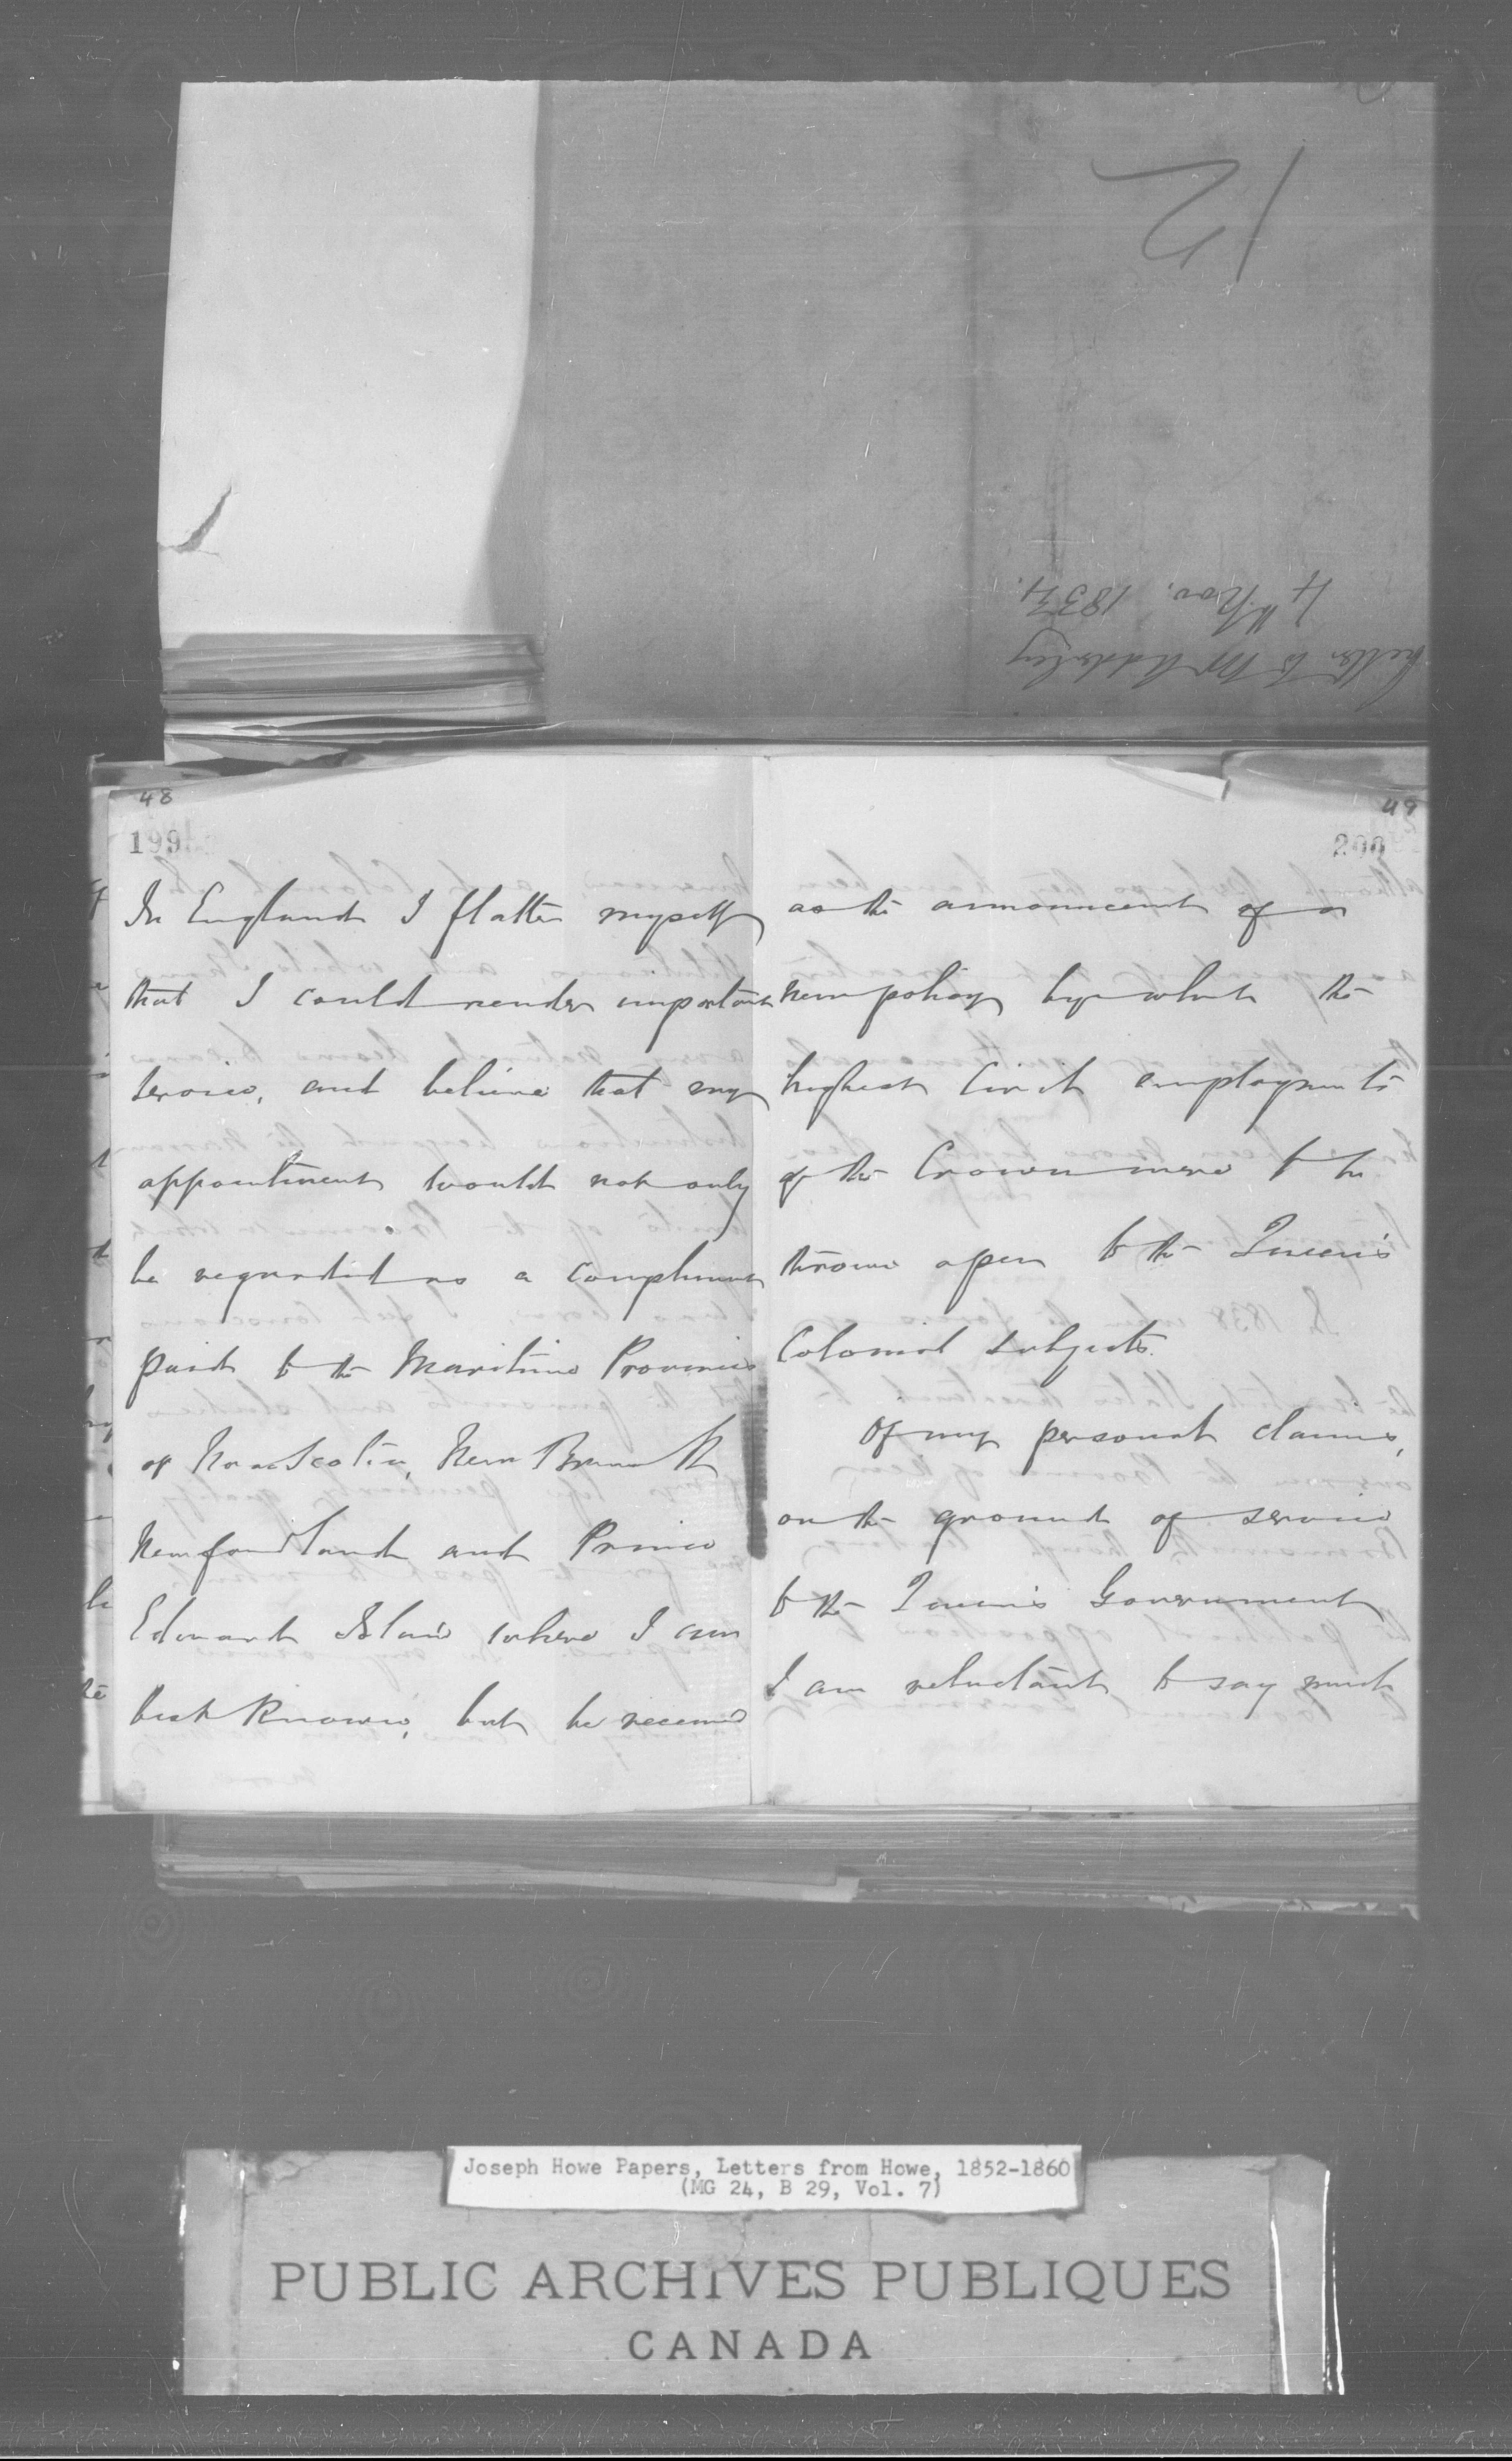 12
Letter to Mr Adderley
4th Nov. 1834.
48
199
In England I flatter myself
that I could render important
service, and believe that my
appointment would not only
be regarded as a compliment
paid to the Maritime Provinces
of Nova Scotia, New Brunswick
Newfoundland and Prince
Edward Island where I am
best known, but be received
49
200
as the announcement of a
new policy by which the
highest Civil employments
of the Crown were to be
thrown open to the Queen's
Colonial subjects.
Of my personal claims,
on the ground of service
to the Queen's Government
I am reluctant to say much
Joseph Howe Papers, Letters from Howe, 1852-1860
(MG 24, B 29, Vol. 7)
PUBLIC ARCHIVES PUBLIQUES
CANADA